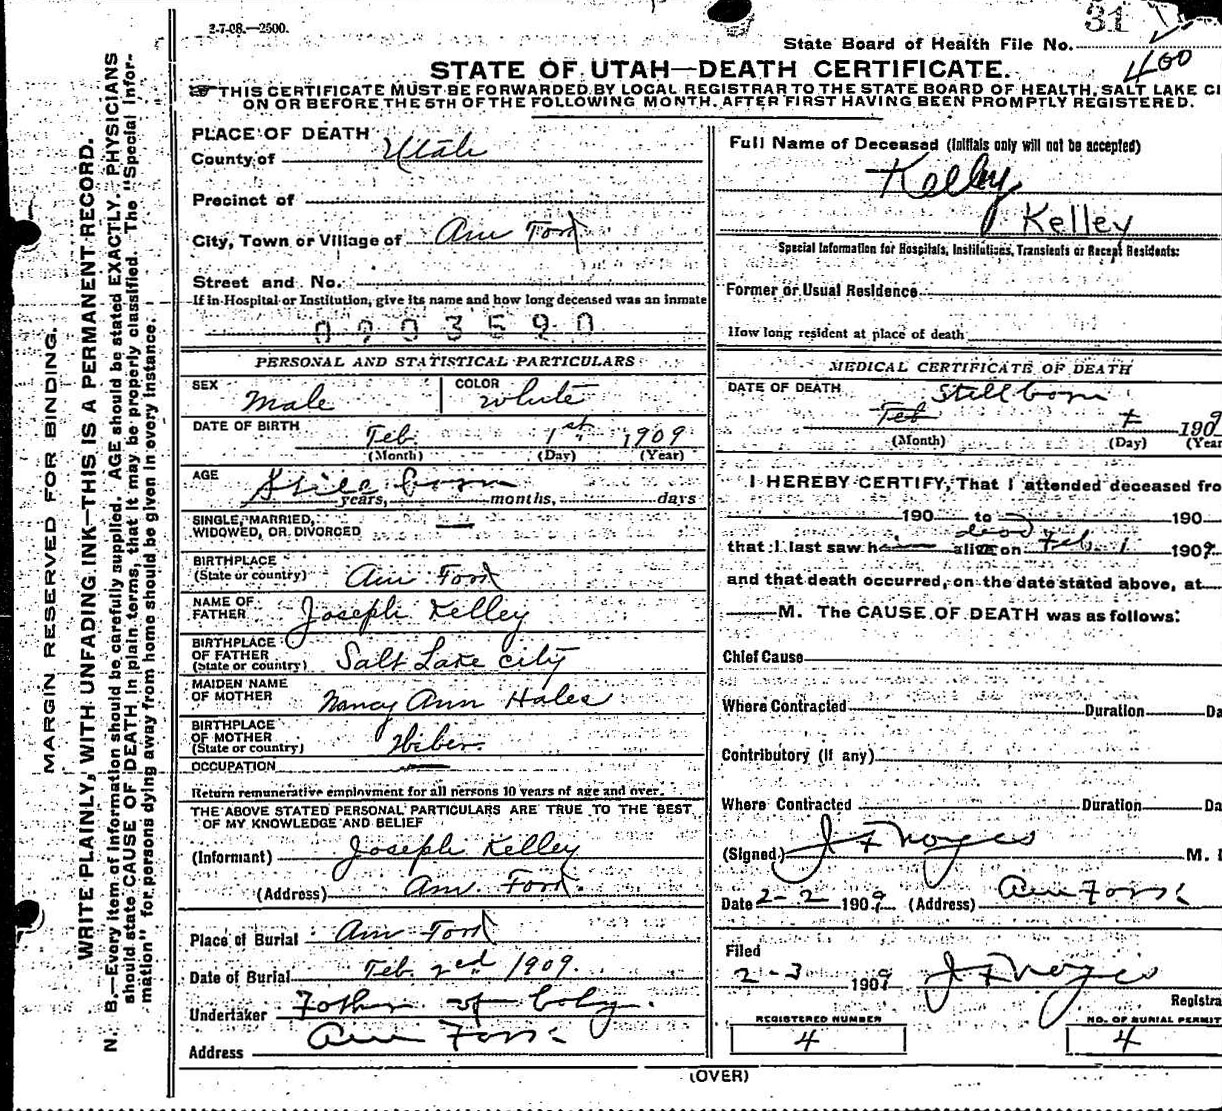 2-7-08.—2500.
31
State Board of Health File No.
400
STATE OF UTAH—DEATH CERTIFICATE.
THIS CERTIFICATE MUST BE FORWARDED BY LOCAL REGISTRAR TO THE STATE BOARD OF HEALTH, SALT LAKE CI
ON OR BEFORE THE 5TH OF THE FOLLOWING MONTH, AFTER FIRST HAVING BEEN PROMPTLY REGISTERED.
MARGIN RESERVED FOR BINDING.
WRITE PLAINLY, WITH UNFADING INK—THIS IS A PERMANENT RECORD.
N. B.—Every item of information should be carefully supplied. AGE should be stated EXACTLY. PHYSICIANS
should state CAUSE OF DEATH in plain terms, that it may be properly classified. The "Special Infor-
mation" for persons dying away from home should be given in every instance.
PLACE OF DEATH
County of Utah
Precinct of
City, Town or Village of Am Ford
Street and No.
If in Hospital or Institution, give its name and how long deceased was an inmate
0003590
PERSONAL AND STATISTICAL PARTICULARS
SEX Male
COLOR White
DATE OF BIRTH Feb 1st 1909
(Month) (Day) (Year)
AGE Still born
years, months, days
SINGLE, MARRIED,
WIDOWED, OR DIVORCED —
BIRTHPLACE
(State or country) Am Ford
NAME OF
FATHER Joseph Kelley
BIRTHPLACE
OF FATHER
(State or country) Salt Lake City
MAIDEN NAME
OF MOTHER Nancy Ann Hales
BIRTHPLACE
OF MOTHER
(State or country) Hiber
OCCUPATION —
Return remunerative employment for all persons 10 years of age and over.
THE ABOVE STATED PERSONAL PARTICULARS ARE TRUE TO THE BEST
OF MY KNOWLEDGE AND BELIEF
(Informant) Joseph Kelley
(Address) Am. Ford.
Place of Burial Am Ford
Date of Burial Feb 2nd 1909.
Undertaker Father of baby.
Address Am Ford
Full Name of Deceased (Initials only will not be accepted)
Kelley
Kelley
Special Information for Hospitals, Institutions, Transients or Recent Residents:
Former or Usual Residence
How long resident at place of death
MEDICAL CERTIFICATE OF DEATH
DATE OF DEATH Stillborn
Feb 1 1909
(Month) (Day) (Year
I HEREBY CERTIFY, That I attended deceased fro
190 to 190
dead
that I last saw him alive on Feb 1 1909.
and that death occurred, on the date stated above, at
M. The CAUSE OF DEATH was as follows:
Chief Cause
Where Contracted Duration Da
Contributory (if any)
Where Contracted Duration Da
(Signed) J F Noyes M. D
Date 2-2 1909 (Address) Am Ford
Filed
2-3 1909 J F Noyes
Registra
REGISTERED NUMBER
4
NO. OF BURIAL PERMIT
4
(OVER)